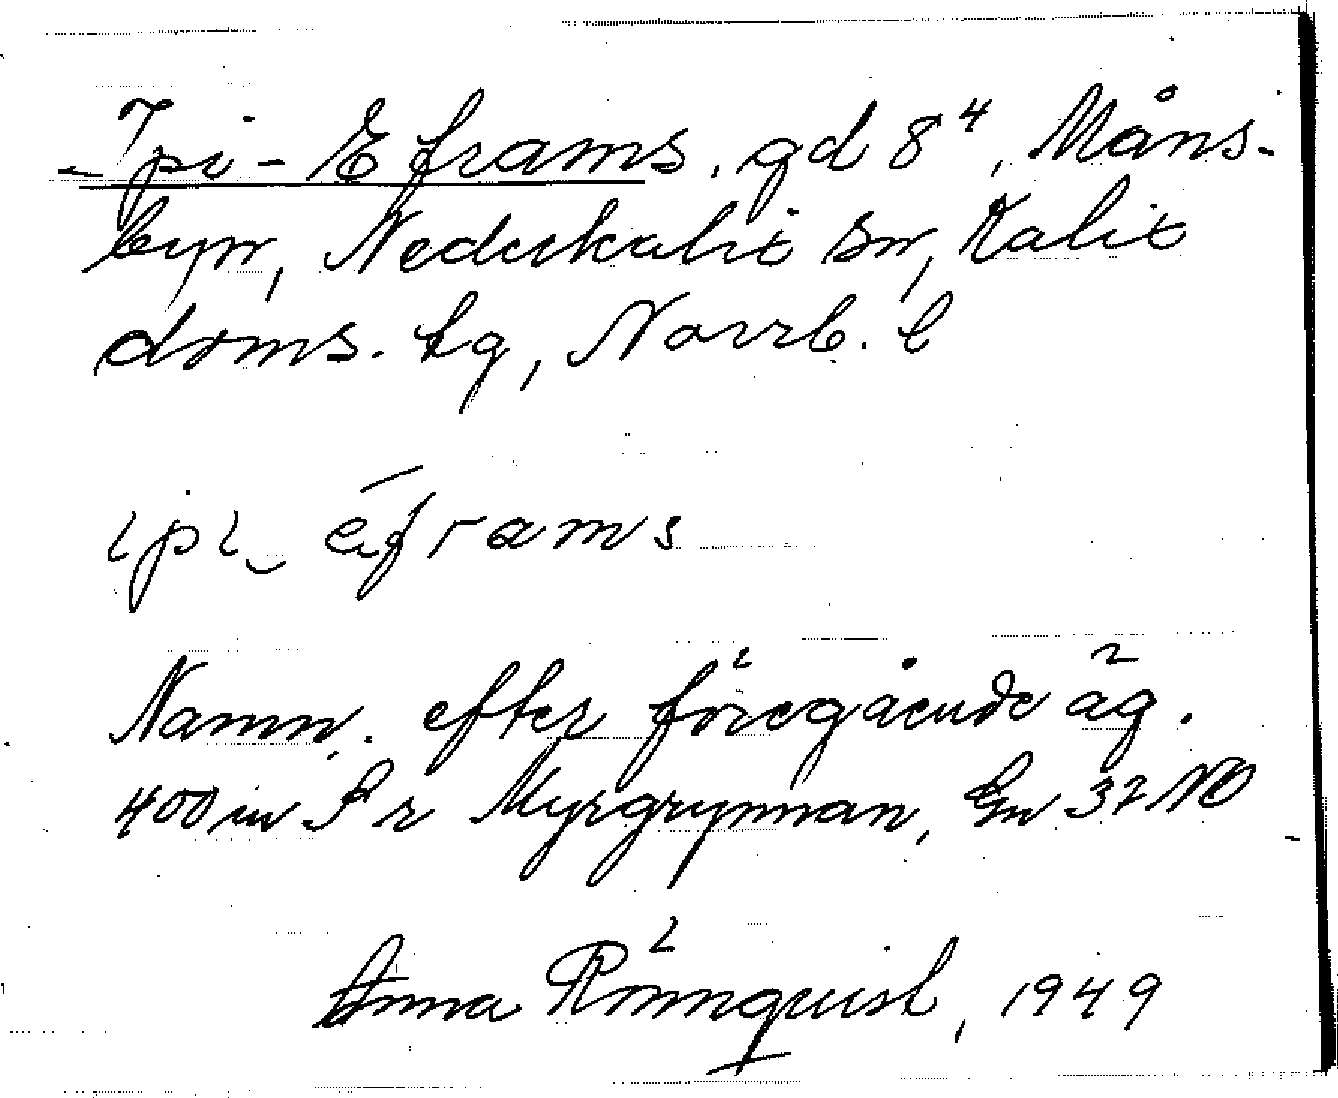 -Ipi-Eframs, gd 8⁴, Måns-
byn, Nederkalix sn, Kalix
doms. lg, Norrb. l
ipi‿ éframs
Namn. efter föregående äg.
400 m S r Myrgrynnan, Gn 32 NO
Anna Rönnquist, 1949